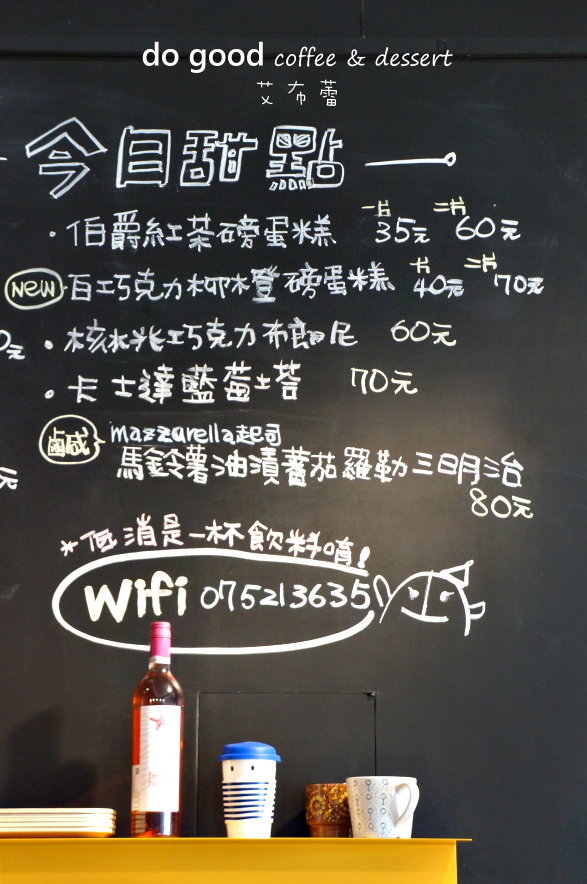 do good coffee & dessert
艾布蕾
今日甜點
・伯爵紅茶磅蛋糕 一片 35元 二片 60元
NEW 百巧克力柳橙磅蛋糕 一片 40元 二片 70元
・核桃巧克力布朗尼 60元
・卡士達藍莓塔 70元
鹹 mazzurella起司
馬鈴薯油漬蕃茄羅勒三明治
80元
*低消是一杯飲料唷!
Wifi 075213635